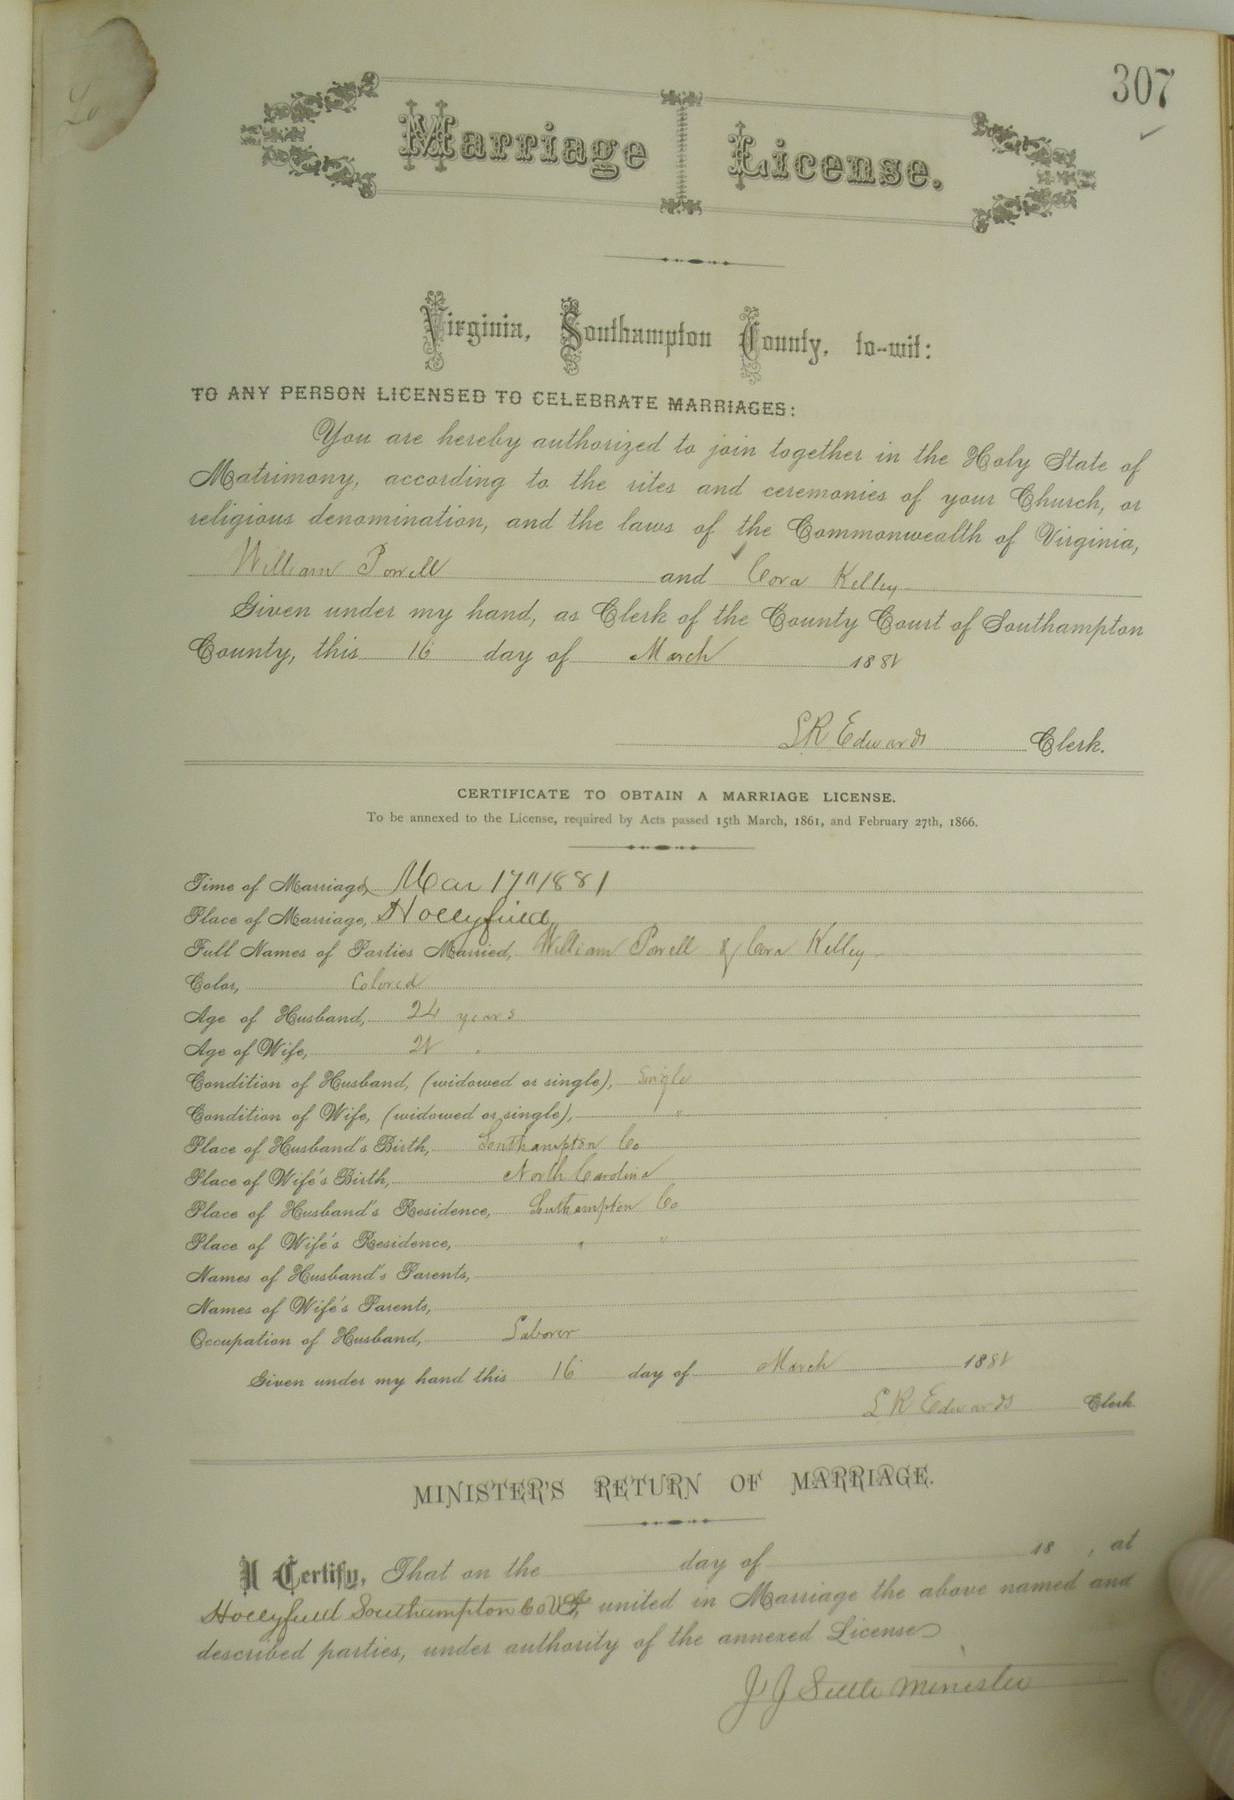 307
Marriage License.
Virginia, Southampton County, to-wit:
TO ANY PERSON LICENSED TO CELEBRATE MARRIAGES:
You are hereby authorized to join together in the Holy State of
Matrimony, according to the rites and ceremonies of your Church, or
religious denomination, and the laws of the Commonwealth of Virginia,
William Powell and Cora Kelley
Given under my hand, as Clerk of the County Court of Southampton
County, this 16 day of March 1881
LR Edwards Clerk.
CERTIFICATE TO OBTAIN A MARRIAGE LICENSE.
To be annexed to the License, required by Acts passed 15th March, 1861, and February 27th, 1866.
Time of Marriage, Mar 17" 1881
Place of Marriage, Hollyfield
Full Names of Parties Married, William Powell & Cora Kelley
Color, Colored
Age of Husband, 24 years
Age of Wife, 21 "
Condition of Husband, (widowed or single), Single
Condition of Wife, (widowed or single), "
Place of Husband's Birth, Southampton Co
Place of Wife's Birth, North Carolina
Place of Husband's Residence, Southampton Co
Place of Wife's Residence, " "
Names of Husband's Parents,
Names of Wife's Parents,
Occupation of Husband, Laborer
Given under my hand this 16 day of March 1881
LR Edwards Clerk
MINISTER'S RETURN OF MARRIAGE.
I Certify, That on the day of 18 , at
Hollyfield Southampton Co I united in Marriage the above named and
described parties, under authority of the annexed License
J J minister